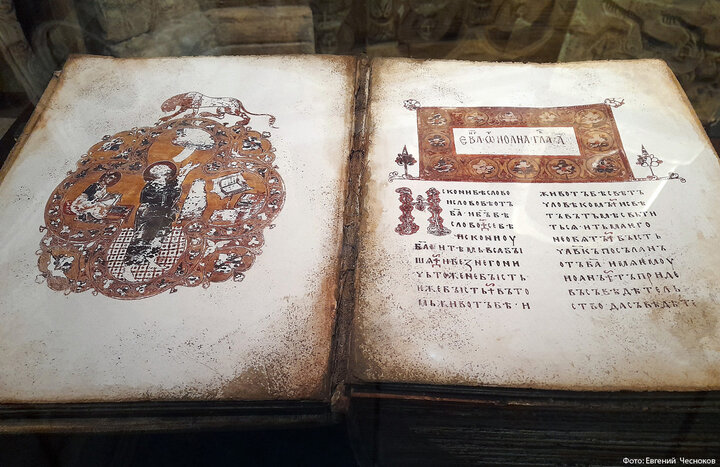 ЕВА ѾІОАНА ГЛА А
ИСКОНИ БѢ СЛОВО
И СЛОВО БѢ ОТЪ
БА҃ И БЪ҃ БѢ
СЛОВО СЕ БѢ
ИСКОНИ ОУ
БА҃ И ТѢМЬ ВЬСА БЫ
ША И БЕЗ НЕГО НИ
ЧЬТОЖЕ НЕ БЫСТЬ
ѤЖЕ БЫСТЬ ВЪ ТО
МЬ ЖИВОТЪ БѢ И
ЖИВОТЪ БѢ СВѢТЪ
ЧЛОВѢКОМЪ И СВѢ
ТЪ ВЪ ТЬМѢ СВЬТИ
ТЬСѦ И ТЬМА ѤГО
НЕ ОБѦТЪ БЫСТЬ
ЧЛ҃ВКЪ ПОСЪЛАНЪ
ОТЪ БА҃ ИМѦ ѤМОУ
ИОАНЪ ТЪ ПРИДЕ
ВЪ СЪВѢДѢТЕЛЬ
СТВО ДА СЪВѢДѢТЕ
Фото: Евгений Чесноков